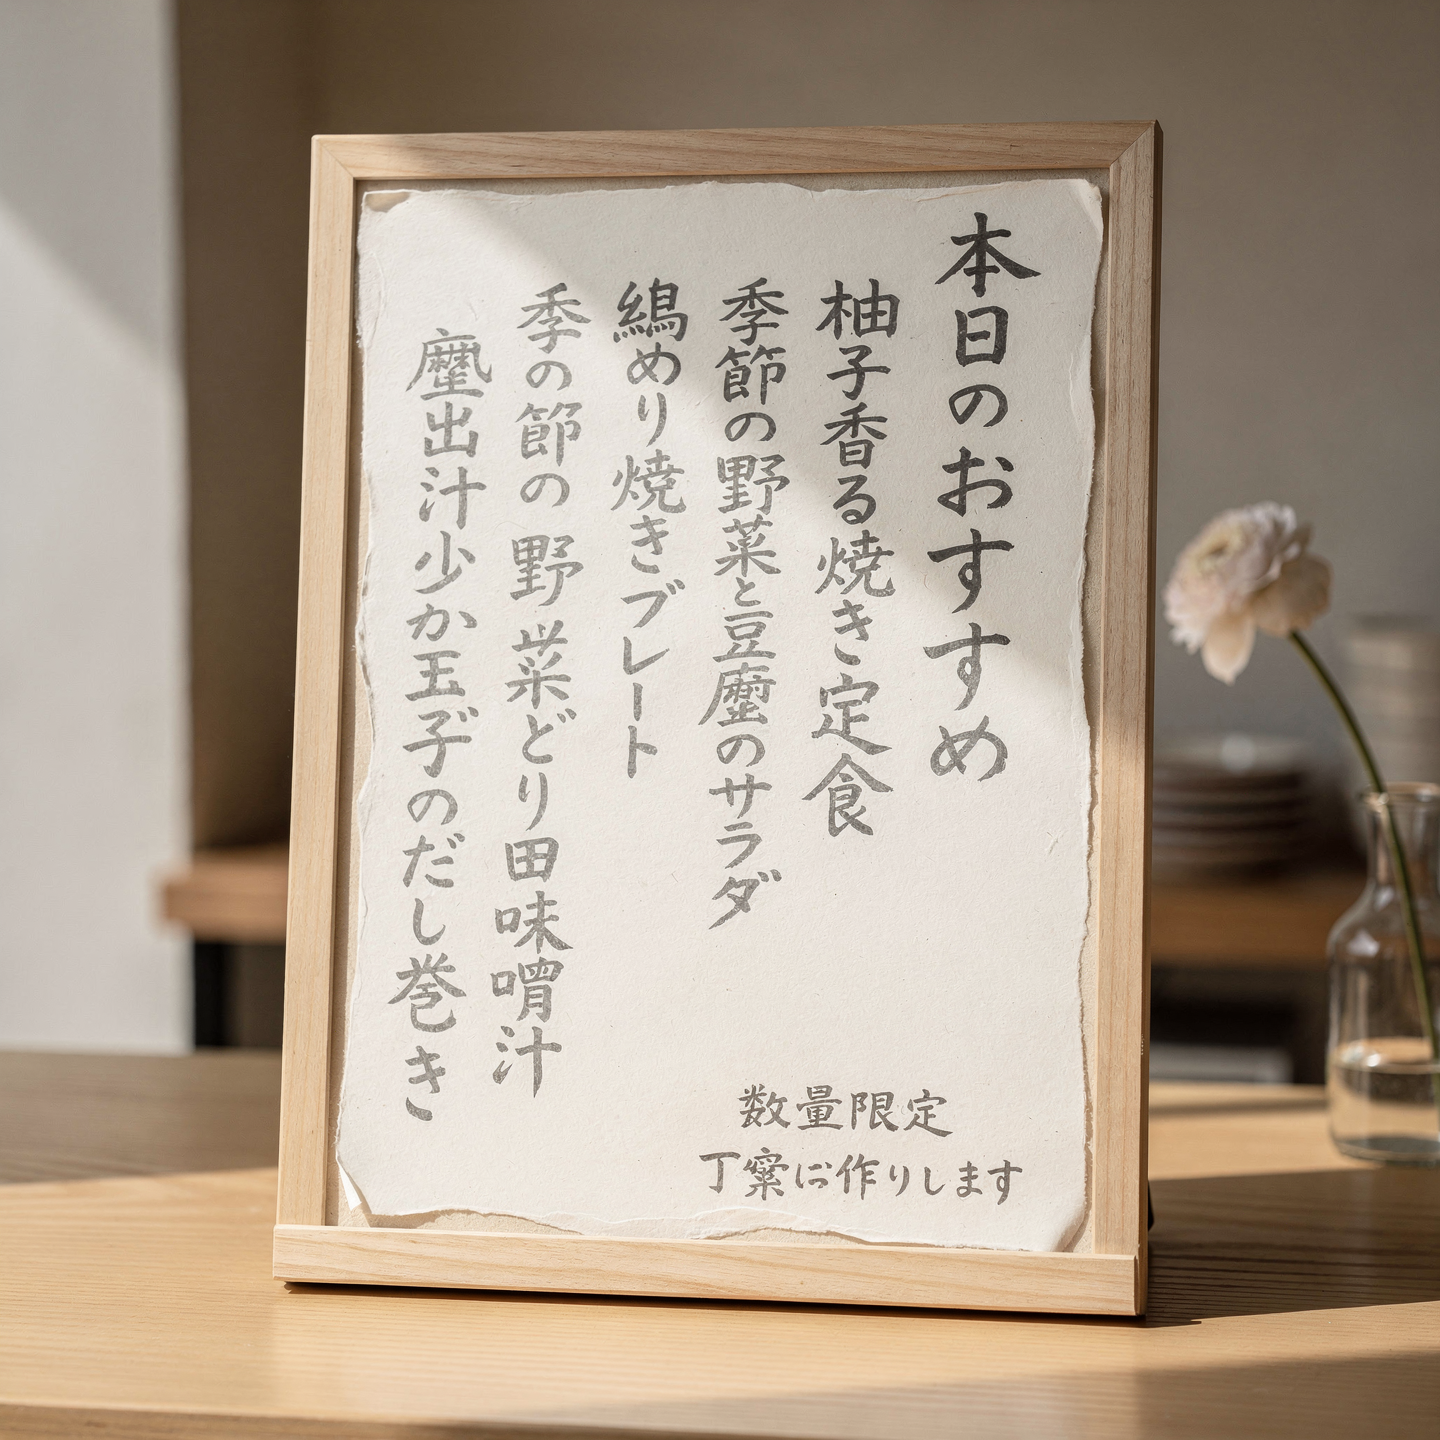 本日のおすすめ
柚子香る焼き定食
季節の野菜と豆のサラダ
めり焼きブレート
季の節の野菜どり田味噌汁
出汁少か玉子のだし巻き
数量限定
丁に作りします